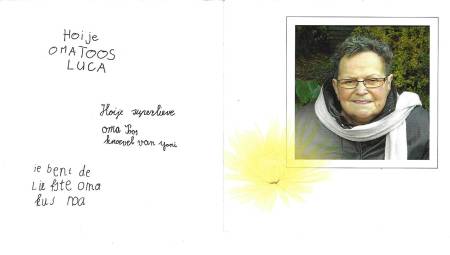 Hoije
OMA TOOS
LUCA
Hoije superlieve
oma Toos
knoevel van yoni
je bent de
Liefste oma
kus noa